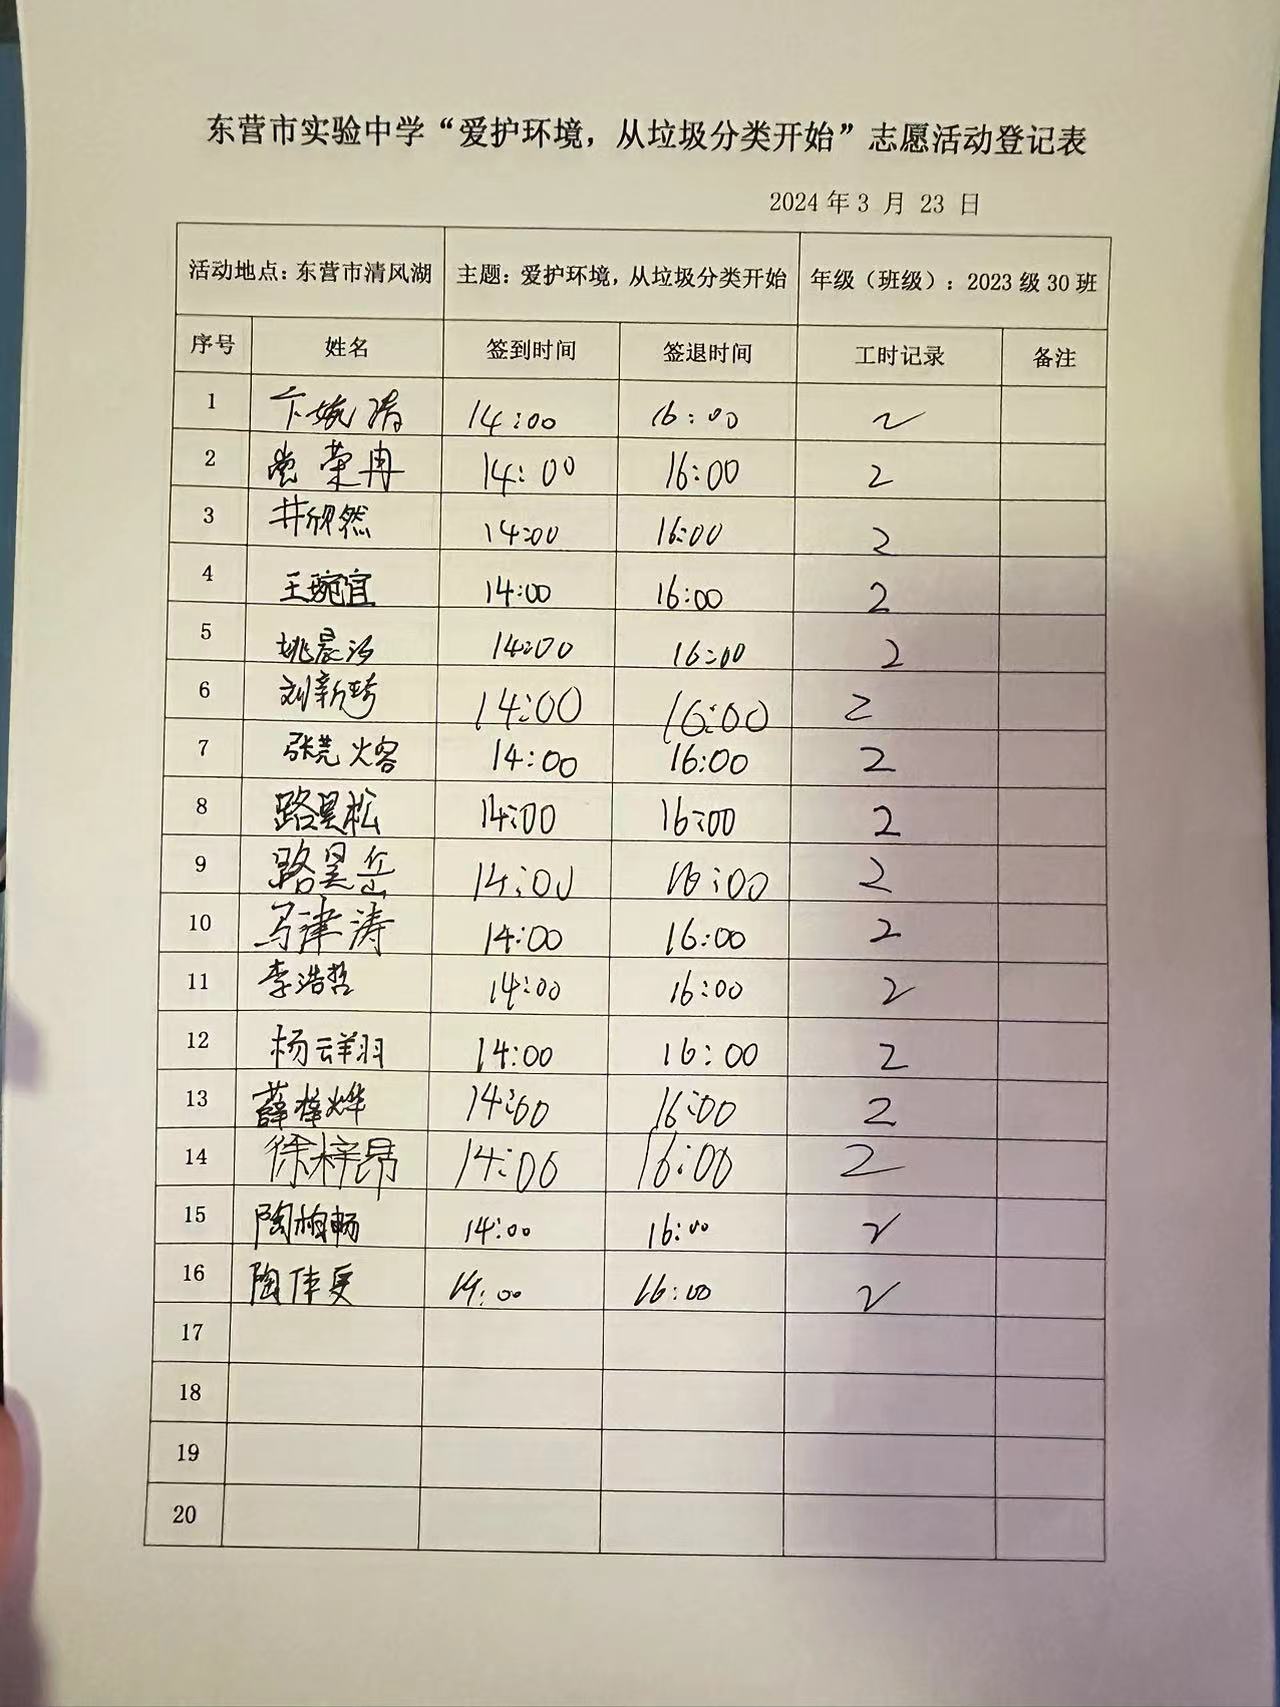 东营市实验中学“爱护环境，从垃圾分类开始”志愿活动登记表
2024 年 3 月 23 日
活动地点：东营市清风湖 主题：爱护环境，从垃圾分类开始 年级（班级）：2023 级 30 班
序号 姓名 签到时间 签退时间 工时记录 备注
1 卞婉清 14:00 16:00 2
2 尚荣冉 14:00 16:00 2
3 井欣然 14:00 16:00 2
4 王琬宜 14:00 16:00 2
5 姚晨汐 14:00 16:00 2
6 刘新琦 14:00 16:00 2
7 张芸熔 14:00 16:00 2
8 路昊松 14:00 16:00 2
9 路昊岳 14:00 16:00 2
10 马津涛 14:00 16:00 2
11 李浩哲 14:00 16:00 2
12 杨云羽 14:00 16:00 2
13 薛梓烨 14:00 16:00 2
14 徐梓昂 14:00 16:00 2
15 陶柏畅 14:00 16:00 2
16 陶佳旻 14:00 16:00 2
17
18
19
20